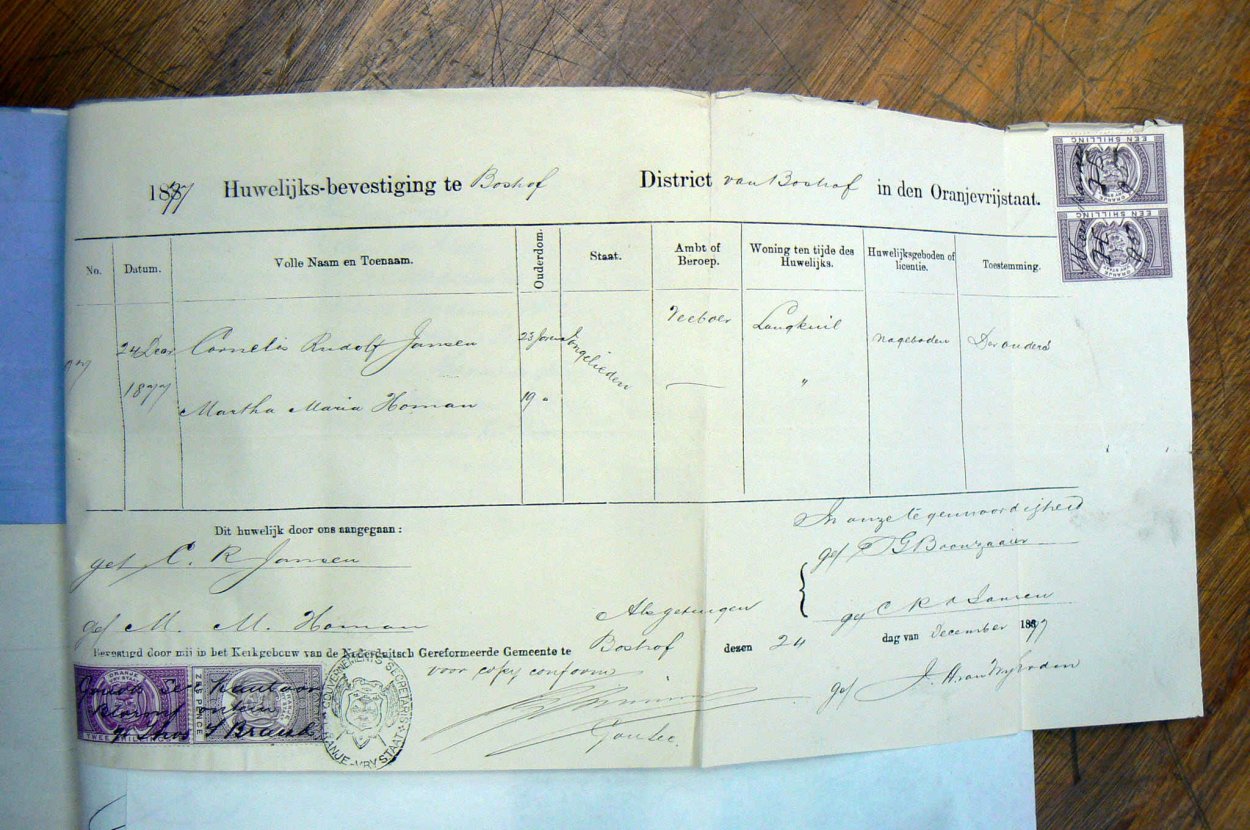 EEN SHILLING
EEN SHILLING
1877 Huwelijks-bevestiging te Boshof District van Boshof in den Oranjevrijstaat.
No. Datum. Volle Naam en Toenaam. Ouderdom. Staat. Ambt of Beroep. Woning ten tijde des Huwelijks. Huwelijksgeboden of licentie. Toestemming.
24 Decr Cornelis Rudolf Jansen 23 Jaren Jongelieden Veeboer Langkuil nageboden Der ouders
1877 Martha Maria Homan 19 " — "
Dit huwelijk door ons aangegaan :
get C. R. Jansen
get M. M. Homan
In onze tegenwoordigheid
get
get C R Jansen
Als getuigen
Bevestigd door mij in het Kerkgebouw van de Nederduitsch Gereformeerde Gemeente te Boshof dezen 24 dag van December 1877
voor copij conform
get
Gov Sec.
ORANJE
TWEE SHILLINGS
ORANJE
ZES PENCE
GOUVERNEMENTS SECRETARIS
ORANJE-VRYSTAAT